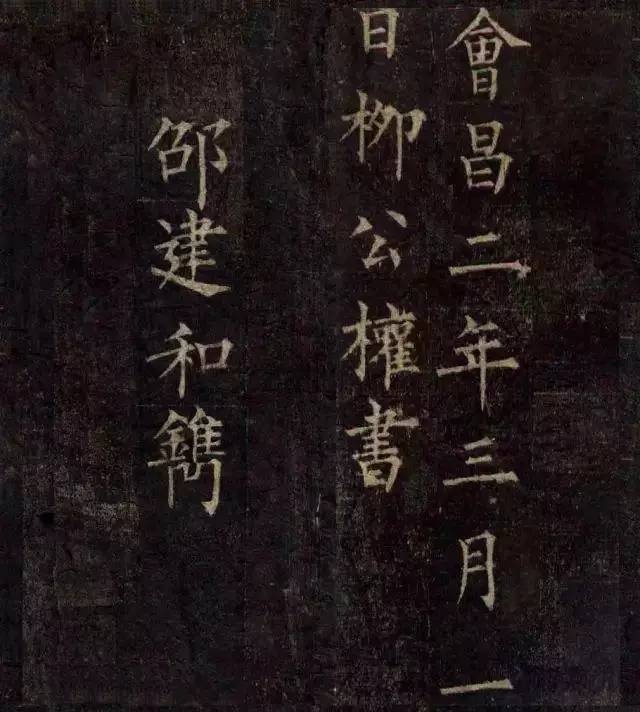 會昌二年三月一
日柳公權書
邵建和鐫